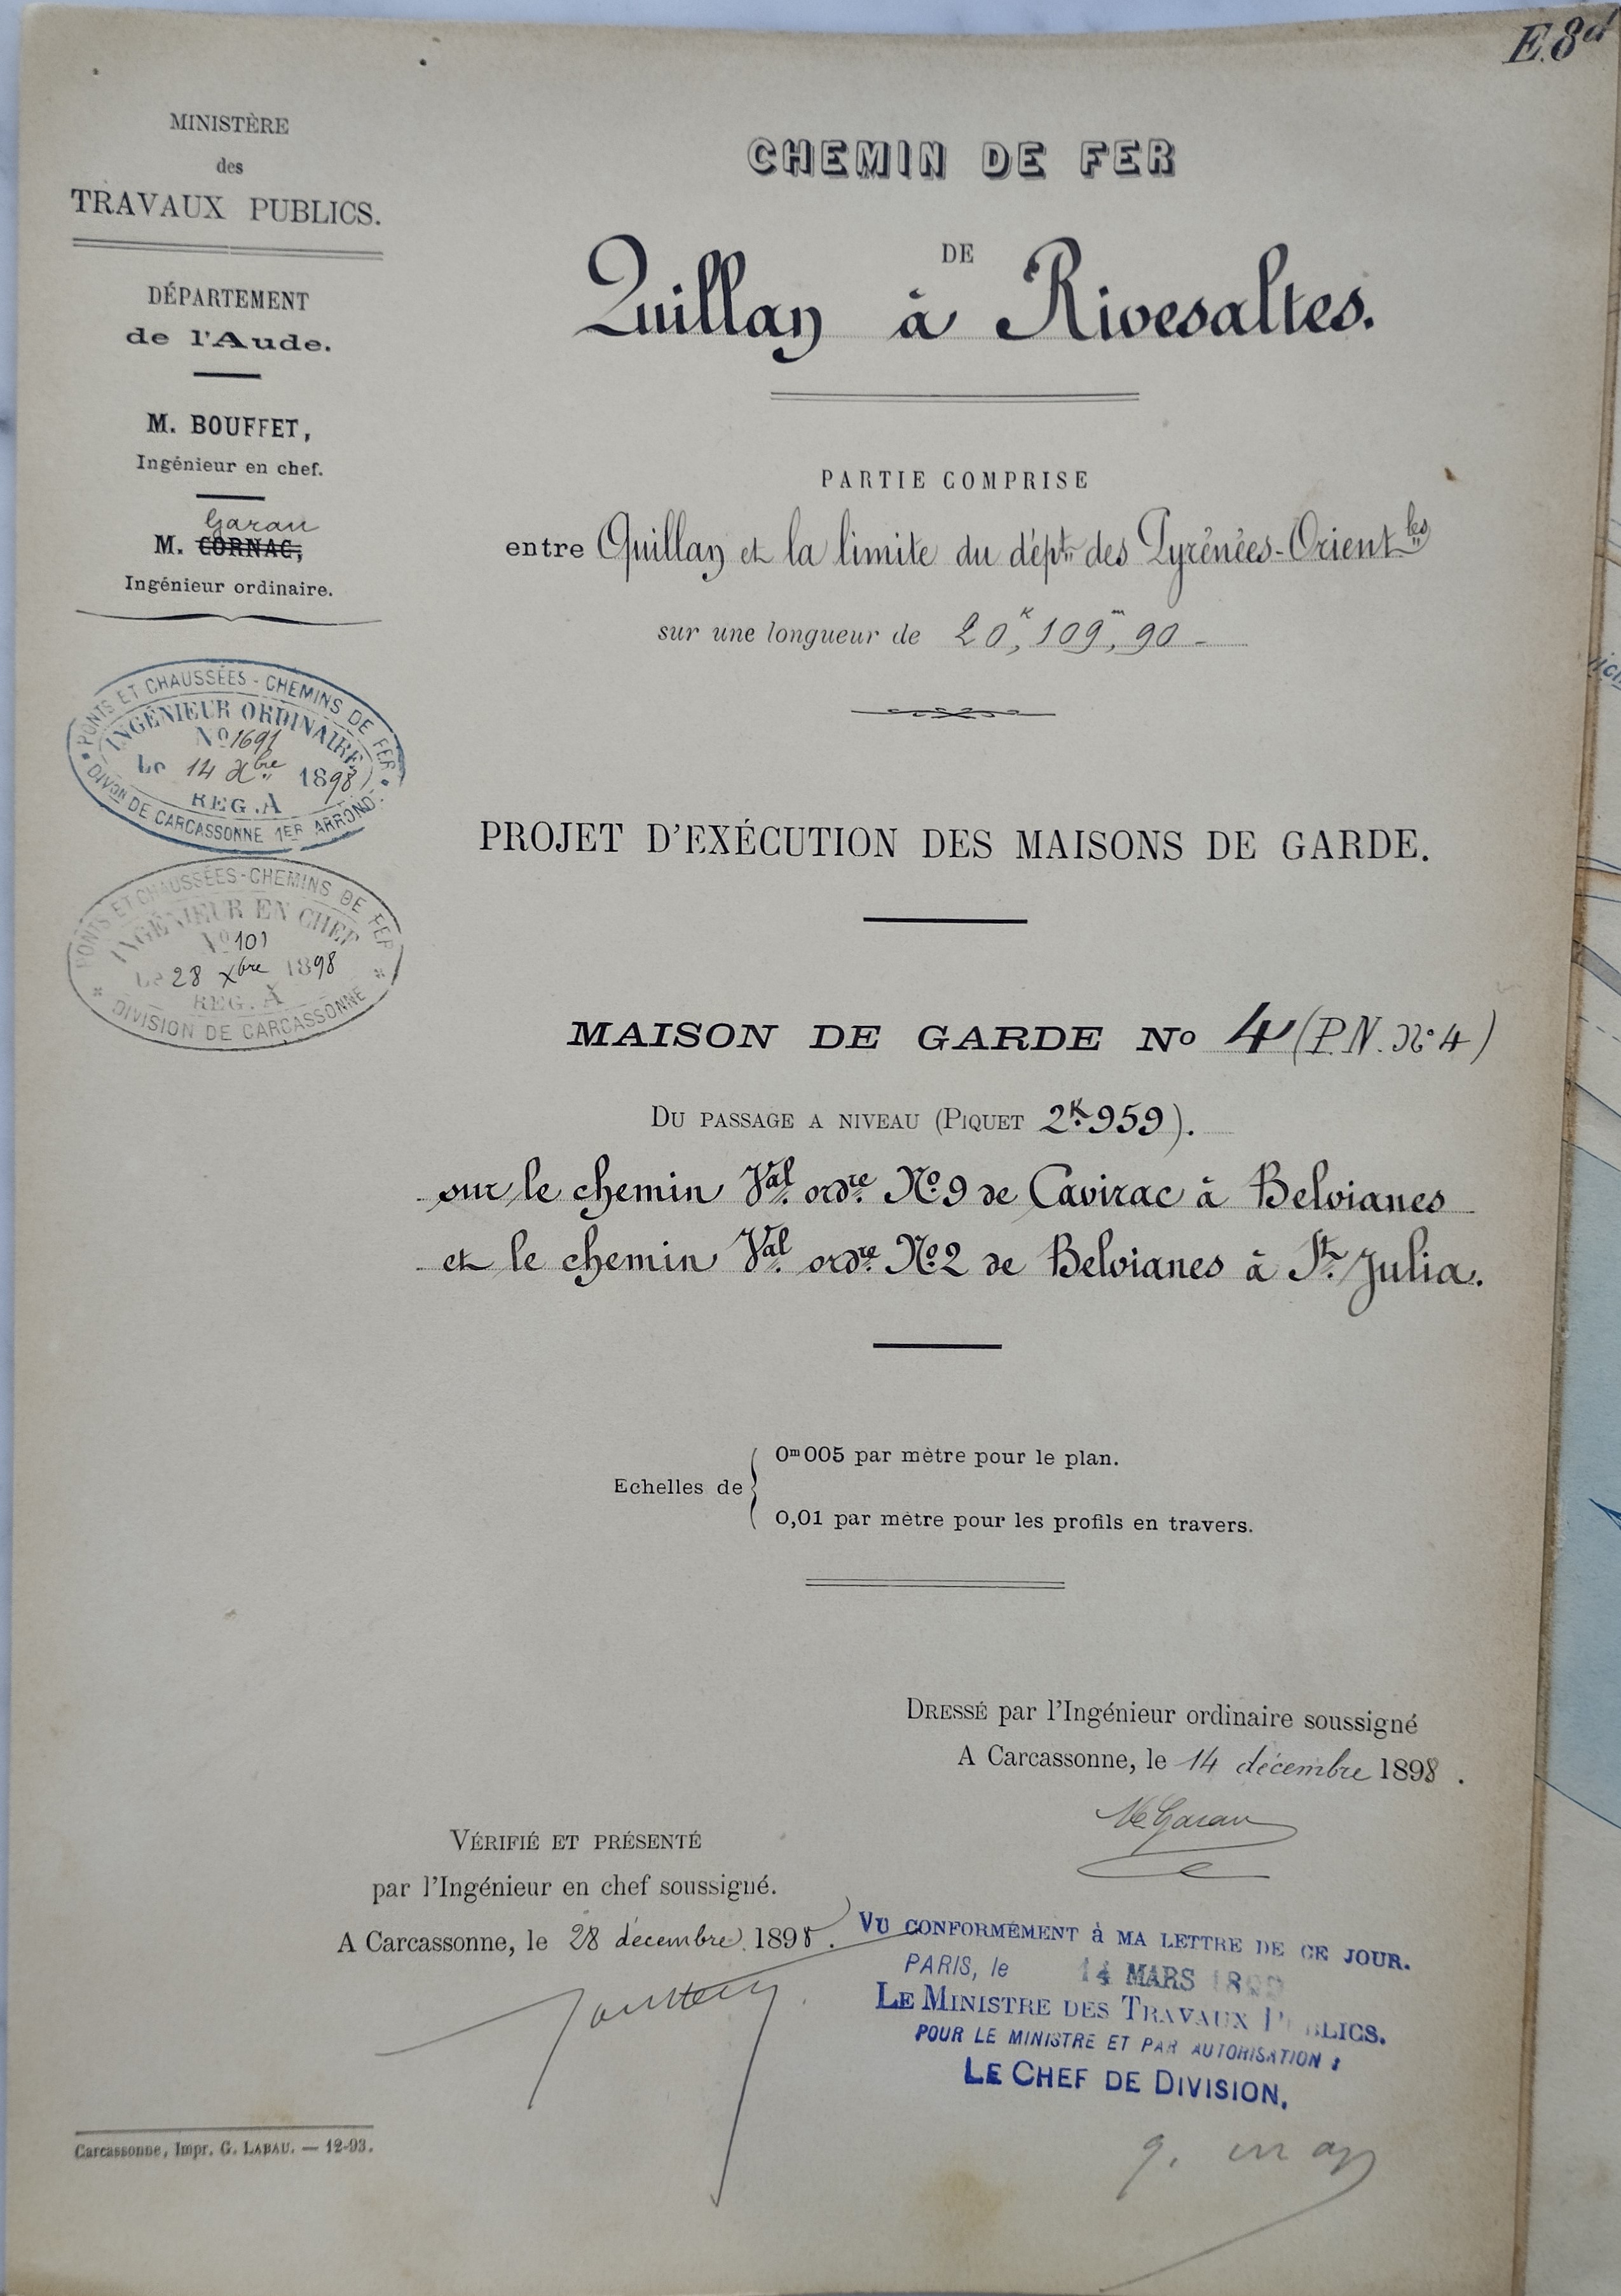 E.8d
MINISTÈRE
des
TRAVAUX PUBLICS.
DÉPARTEMENT
de l'Aude.
M. BOUFFET,
Ingénieur en chef.
Garau
M. CORNAC,
Ingénieur ordinaire.
PONTS ET CHAUSSÉES - CHEMINS DE FER
INGÉNIEUR ORDINAIRE
No 1691
Le 14 Xbre 1898
REG. A
DIVON DE CARCASSONNE 1ER ARROND.
PONTS ET CHAUSSÉES - CHEMINS DE FER
INGÉNIEUR EN CHEF
No 101
Le 28 Xbre 1898
REG. A
DIVISION DE CARCASSONNE
CHEMIN DE FER
DE
Quillan à Rivesaltes.
PARTIE COMPRISE
entre Quillan et la limite du dépt. des Pyrénées-Orientles
sur une longueur de 20K,109m,90 -
PROJET D'EXÉCUTION DES MAISONS DE GARDE.
MAISON DE GARDE No 4 (P.N. No 4)
DU PASSAGE A NIVEAU (PIQUET 2K.959).
sur le chemin Val. ordre. No 9 de Cavirac à Belvianes
et le chemin Val. ordre. No 2 de Belvianes à St. Julia.
Echelles de
0m005 par mètre pour le plan.
0,01 par mètre pour les profils en travers.
DRESSÉ par l'Ingénieur ordinaire soussigné
A Carcassonne, le 14 décembre 1898.
Garau
VÉRIFIÉ ET PRÉSENTÉ
par l'Ingénieur en chef soussigné.
A Carcassonne, le 28 décembre 1898.
VU CONFORMÉMENT à MA LETTRE DE CE JOUR.
PARIS, le 14 MARS 1899
LE MINISTRE DES TRAVAUX PUBLICS.
POUR LE MINISTRE ET PAR AUTORISATION :
LE CHEF DE DIVISION,
Carcassonne, Impr. G. LABAU. — 12-93.